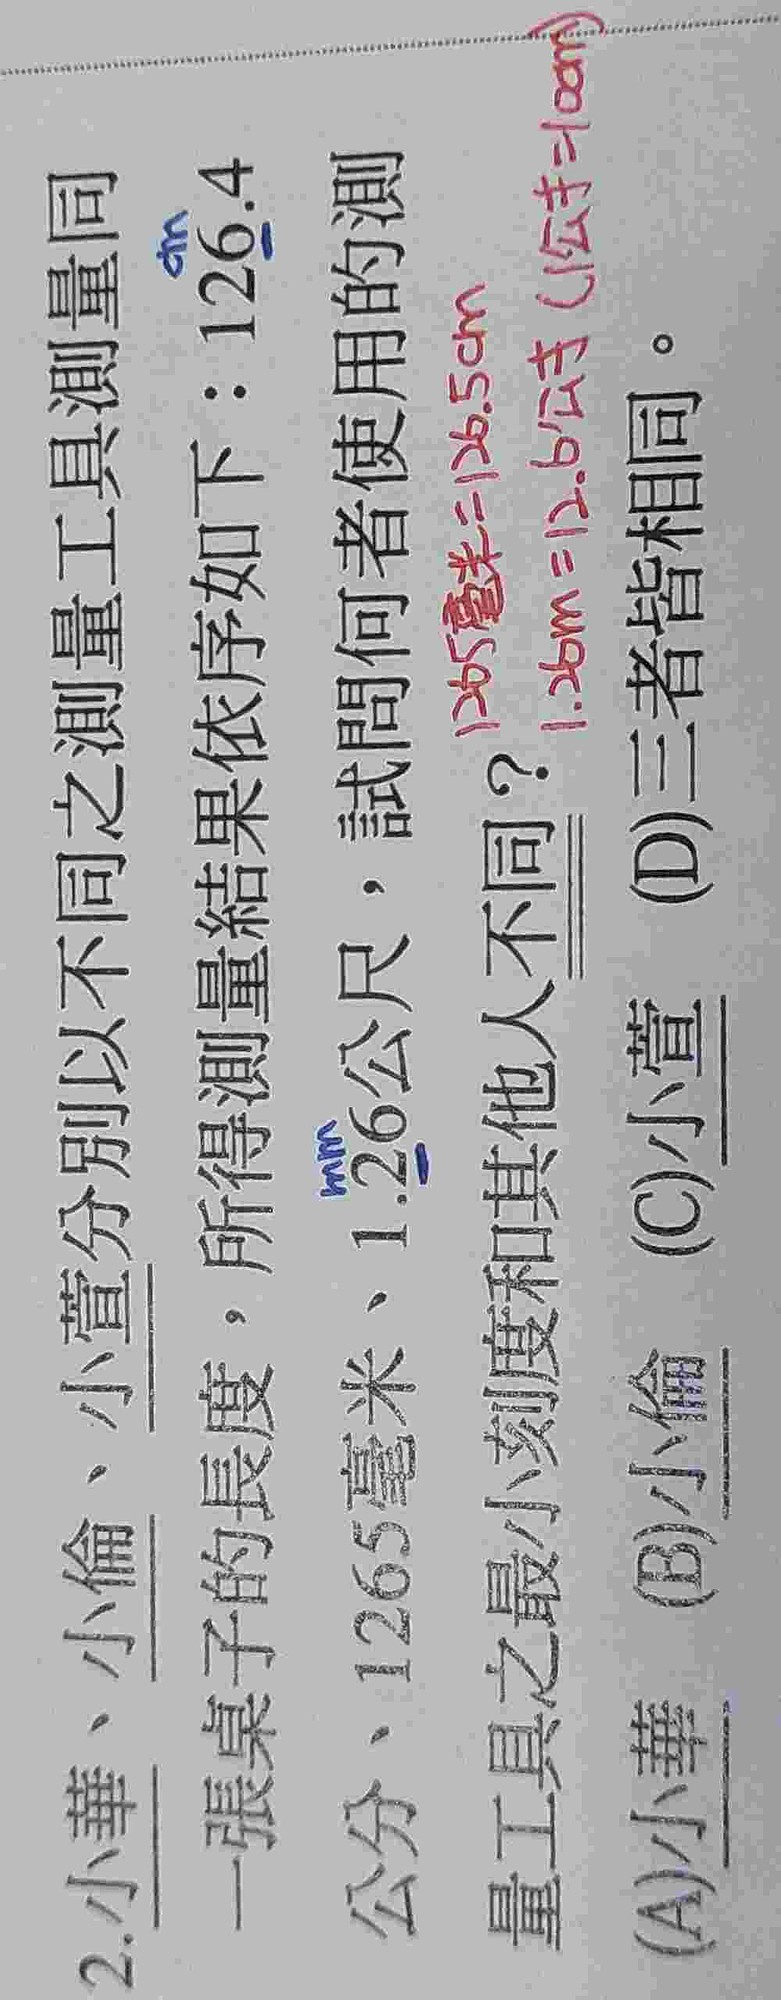 2.小華、小倫、小萱分別以不同之測量工具測量同
cm
一張桌子的長度，所得測量結果依序如下：126.4
mm
公分、1265毫米、1.26公尺，試問何者使用的測
1265毫米=126.5cm
量工具之最小刻度和其他人不同？
1.26m=12.6公寸(1公寸=10cm)
(A)小華 (B)小倫 (C)小萱 (D)三者皆相同。